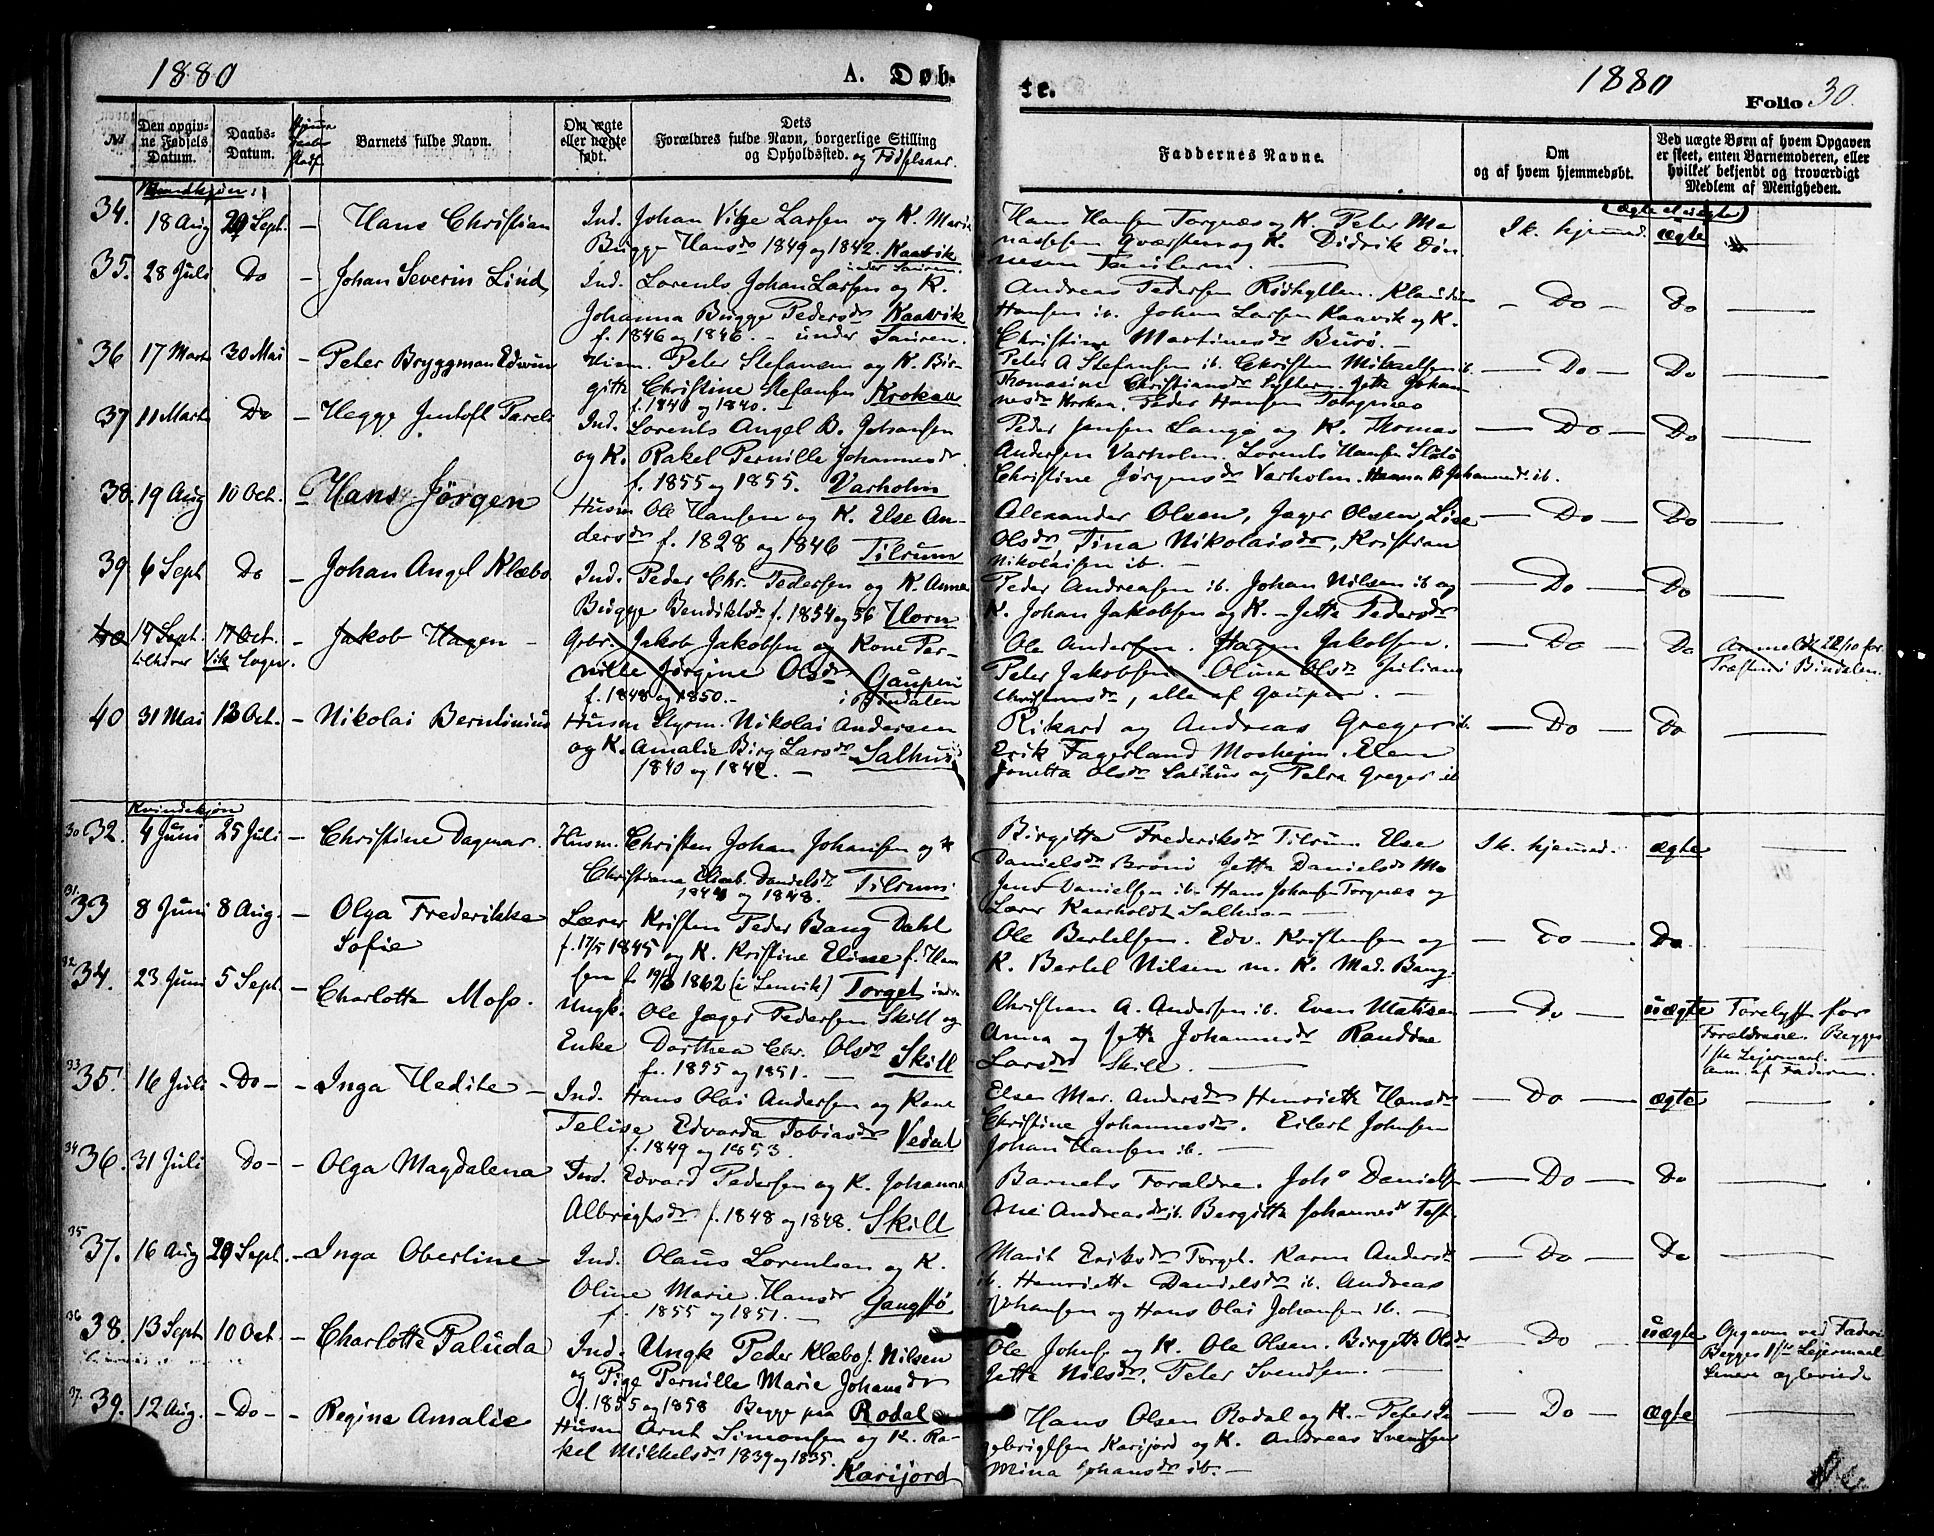 1880
A. Døb-
te.
1880
Folio 30.
№
Den opgiv-
ne Fødsels
Datum.
Daabs-
Datum.
Barnets fulde Navn.
Om ægte
eller uægte
født.
Dets
Forældres fulde Navn, borgerlige Stilling
og Opholdssted. og Fødselsaar.
Faddernes Navne.
Om
og af hvem hjemmedøbt.
Ved uægte Børn af hvem Opgaven
er skeet, enten Barnemoderen, eller
hvilket bekjendt og troværdigt
Medlem af Menigheden.
Mandkjøn:
34. 18 Aug 29 Sept. – Hans Christian Ind. Johan Vitze Larsen og K. Maria
Bugge Hansdr 1849 og 1842. Kaavik
Hans Hansen Torgnæs og K. Peter Ma-
nassesen og K. Didrik Døn-
nesen
Sk. hjemmed. ægte —
35. 28 Juli Do – Johan Severin Lind Ind. Lorents Johan Larsen og K.
Johanna Bugge Pedersdr Kaavik
f. 1846 og 1846. – under Sauren.
Andreas Pedersen Rødhyllen. Klaudius
Hansen ib. Johan Larsen Kaavik og K.
Christine Martinesdr Burø. –
– Do – Do —
36 17 Marts 30 Mai – Peter Bryggman Edwin Husm. Peter Stefansen og K. Bir-
gitte Christine Stefansen Krokan
f. 1840 og 1840. –
Peter A Stefansen ib. Christen Mikaelsen ib
Thomasine Christiansdr Jette Johan-
nesdr Krokan. Peder Hansen Torgnæs
– Do – Do —
37 11 Marts Do – Hegge Jentoft Pareli Ind. Lorents Angel B. Johansen
og K. Rakel Pernille Johannesdr
f. 1855 og 1855. Varholm
Peder Jensen Langø og K. Thomas
Andersen Varholm. Lorents Hansen
Christine Jørgensdr Varholm. Hanna B Johannesd. ib.
– Do – Do —
38. 19 Aug 10 Oct. – Hans Jörgen Husm Ole Hansen og K. Else An-
dersdr f. 1828 og 1846 Tilrum
Alexander Olsen, Jager Olsen, Lise
Olsdr, Tina Nikolaisdr, Kristian
Nikolaisen ib. –
– Do – Do —
39. 6 Sept Do – Johan Angel Klæbo Ind. Peder Chr. Pedersen og K. Anne
Bugge Bendiktsdr f. 1854 og 56 Horn
Peder Andreasen ib. Johan Nilsen ib og
K. Johan Jakobsen og K. – Jetta Pedersdr
– Do – Do —
40 14 Sept. 17 Oct. – Jakob Hagen – Gbr. Jakob Jakobsen og Kone Per-
nille Jørgine Olsdr Gaupen
f. 1848 og 1850. – i Bindalen
Ole Andersen. Hagen Jakobsen.
Peter Jakobsen Olina Olsdr Juliane
Christensdr, alle af Gaupen. –
– Do – Do Anmeldt 22/10 for
Præsten i Bindalen.
40 31 Mai 13 Oct. – Nikolai Berntinius Husm Styrm. Nikolai Andersen
og K. Amalie Birg Larsdr Salhus
1840 og 1842. –
Rikard og Andreas Greger ib.
Erik Fagerland Mosheim. Elen
Jonetta Olsdr Salhus og Petra Greger ib
– Do – Do —
Kvindekjøn
30 32. 4 Juni 25 Juli – Christine Dagmar. Husm. Christen Johan Johansen og K
Christiana Elisab. Danielsdr Tilrum
1844 og 1848.
Birgitta Frederiksdr Tilrum Else
Danielsdr Brønø Jetta Danielsdr Mo
Jens Danielsen ib. Hans Johansen Torgnæs og
Lærer Kaarholdt Salhus. –
Sk. hjemmed. ægte
31. 33 8 Juni 8 Aug. – Olga Frederikke
Sofie
Lærer Kristen Peder Bang Dahl
f. 17/5 1845 og K. Kristine Eline f. Han-
sen f. 19/3 1862 (i Lenvik) Torget
Ole Bertelsen. Edv. Kristensen og
K. Bertel Nilsen m. K. Mad. Bang.
– Do – Do —
32 34. 23 Juni 5 Sept. – Charlotta Moss. Ungk. Ole Jæger Pedersen Skill og
Enke Dorthea Chr. Olsdr Skill
f. 1855 og 1851. –
Christian A. Andersen ib. Even Matisen
Anna og Jetta Johannesdr Randine
Larsdr Skill. –
– Do – uægte Forelyst for
Foreldrene. Begges
1ste Lejermaal.
Anm. af Faderen.
33 35. 16 Juli – Do – – Inga Hedile – Ind. Hans Olai Andersen og Kone
Felise Edvarda Tobiasdr Vedal
f. 1849 og 1853.
Elsen Mar. Andersdr Henriette Hansdr
Christine Johannesdr. Eilert Johnsen
Johan Hansen ib. –
– Do – ægte —
34 36. 31 Juli Do – – Olga Magdalena Ind. Edvard Pedersen og K. Johanna
Albrigtsdr f. 1848 og 1848. Skill
Barnets Foreldre. Johs Danielsen
Ane Andreasdr ib. Bergitta Johannesdr
– Do – Do —
35 37. 16 Aug 29 Sept. – Inga Oberline Ind. Olaus Lorentsen og K.
Oline Marie Hansdr Gangstø
f. 1855 og 1851. –
Marit Eriksdr Torget. Karen Andersdr
ib. Henriette Danielsdr ib. Andreas
Johansen og Hans Olai Johansen ib. –
– Do – Do —
36 38. 13 Sept 10 Oct. – Charlotte Paluda Ind. Ungk Peder Klæbo f. Nilsen
og Pige Pernille Marie Johansdr
f. 1855 og 1858 Begge paa Rodal
Ole Johns. og K. Ole Olsen. Birgitte Olsdr
Jetta Nilsdr. Peter Svendsen. –
– Do – uægte Opgaven ved Faderen
Begges 1ste Lejermaal
Senere ægteviede
37. 39. 12 Aug. – Do – – Regina Amalie Husm Arnt Simonsen og K. Ra-
kel Mikkelsdr 1839 og 1835.
Karijord
Hans Olsen Rodal og K. – Peter In-
gebrigtsen Karijord og K. Andreas Svendsen
Mina Johansdr ib. –
– Do – ægte —